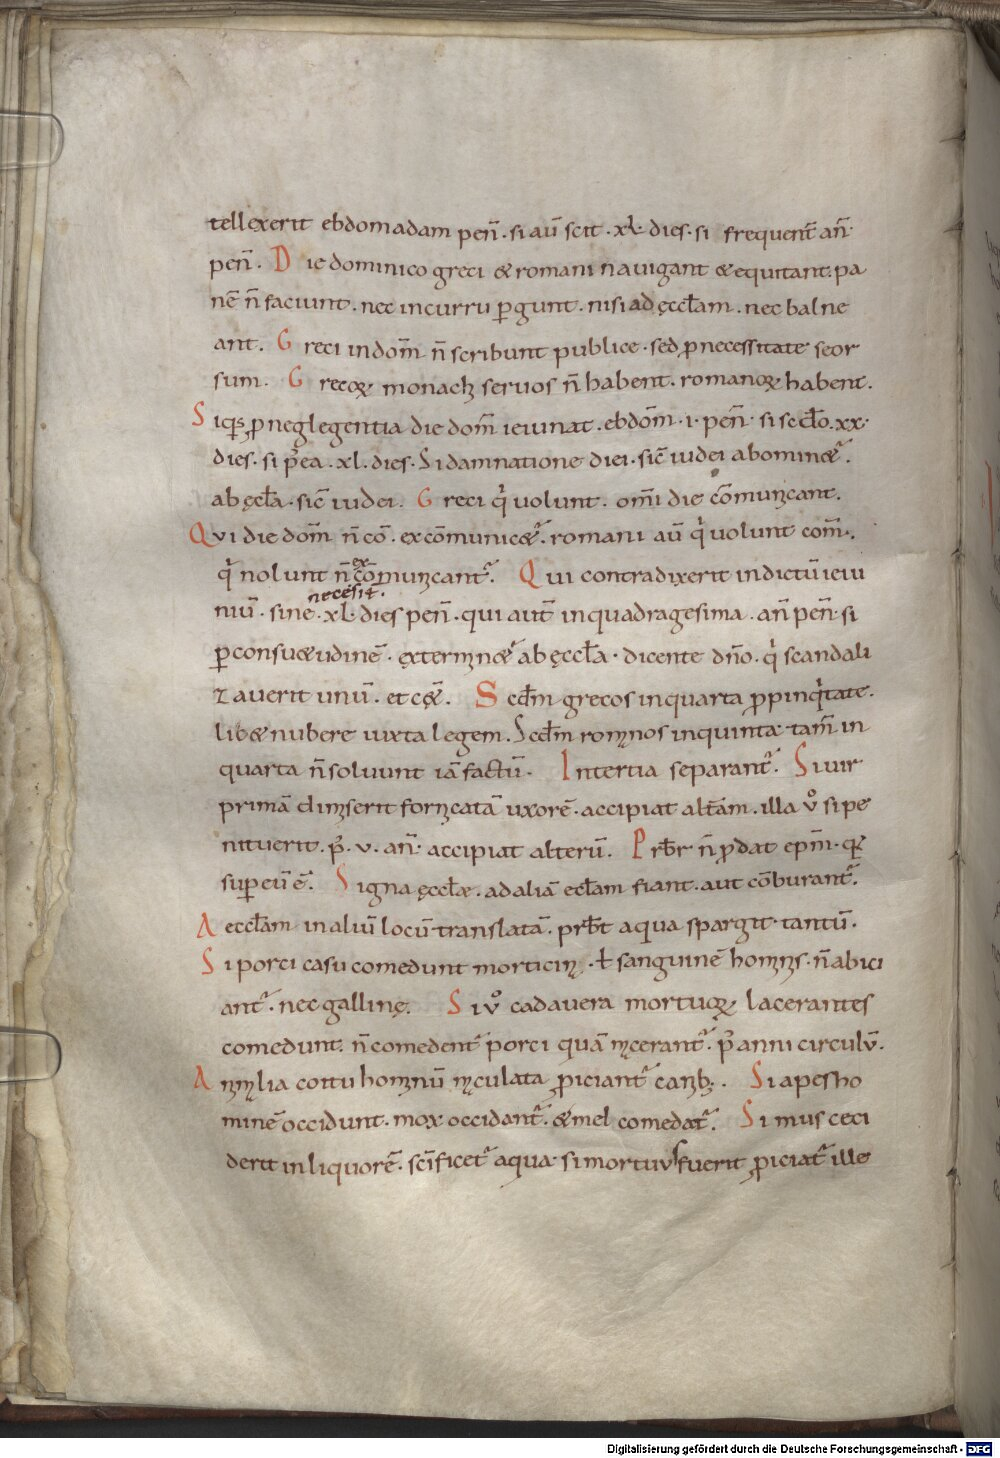 tellexerit ebdomadam peñ · si aū scit · xl · dies · si frequent̄ añ
peñ · Die dominico greci & romani nauigant & equitant · pa
nē ñ faciunt · nec incurru ꝑgunt · nisi ad ęccłam · nec balne
ant · Greci in dom̄ ñ scribunt publice · sed ꝓ necessitate seor
sum · Grecoꝝ monachi seruos ñ habent · romanoꝝ habent ·
Siqs ꝓ neglegentia die dom̄ ieiunat · ebdom̄ · i · peñ · si scdo · xx ·
dies · si p̄ea · xl · dies · Si damnatione diei · sic̄ iudei abomin&ur ·
ab ęccła · sic̄ iudei · Greci qͥ uolunt · om̄i die com̄unicant ·
Qui die dom̄ ñ cō · excōmunic&ur · romani aū qͥ uolunt com̄ ·
qͥ nolunt ñ ex cōmunicant̄ · Qui contradixerit indictū ieiu
necesit ·
niū · sine · xl · dies peñ · qui aut̄ in quadragesima · añ peñ · si
ꝑ consu&udinē · exterminet̄ ab ęccła · dicente dño · qͥ scandali
zauerit unū · et c&̄ · Scdm grecos in quarta ꝓpinqͥtate ·
lib& nubere iuxta legem · Scdm romanos in quinta · tam̄ in
quarta ñ soluunt iā factū · In tertia separant̄ · Si uir
primā dimiserit fornicatā uxorē · accipiat altam · illa uͦ si pe
nituerit · p̄ · v · añ · accipiat alterū · Prbr ñ ꝓdat epm̄ · qꝛ
super eū ē · Signa ęccłæ · ad aliā eccłam fiant · aut cōburant̄ ·
Aecclam in aliū locū translatā · prbt aqua spargit · tantū ·
Si porci casu comedunt morticina · ł sanguinē hominis · ñ abici
ant̄ · nec gallinę · Si uͦ cadauera mortuoꝝ lacerantes
comedunt · ñ comedent̄ porci quā macerant̄ · p̄ anni circulū ·
Animalia coitu hominū maculata ꝓiciant̄ canibꝫ · Si apes ho
minē occidunt · mox occidant̄ · & mel comedat̄ · Si mus ceci
derit in liquorē · scificet̄ aqua · si mortuus fuerit ꝓiciat̄ ille
Digitalisierung gefördert durch die Deutsche Forschungsgemeinschaft - DFG